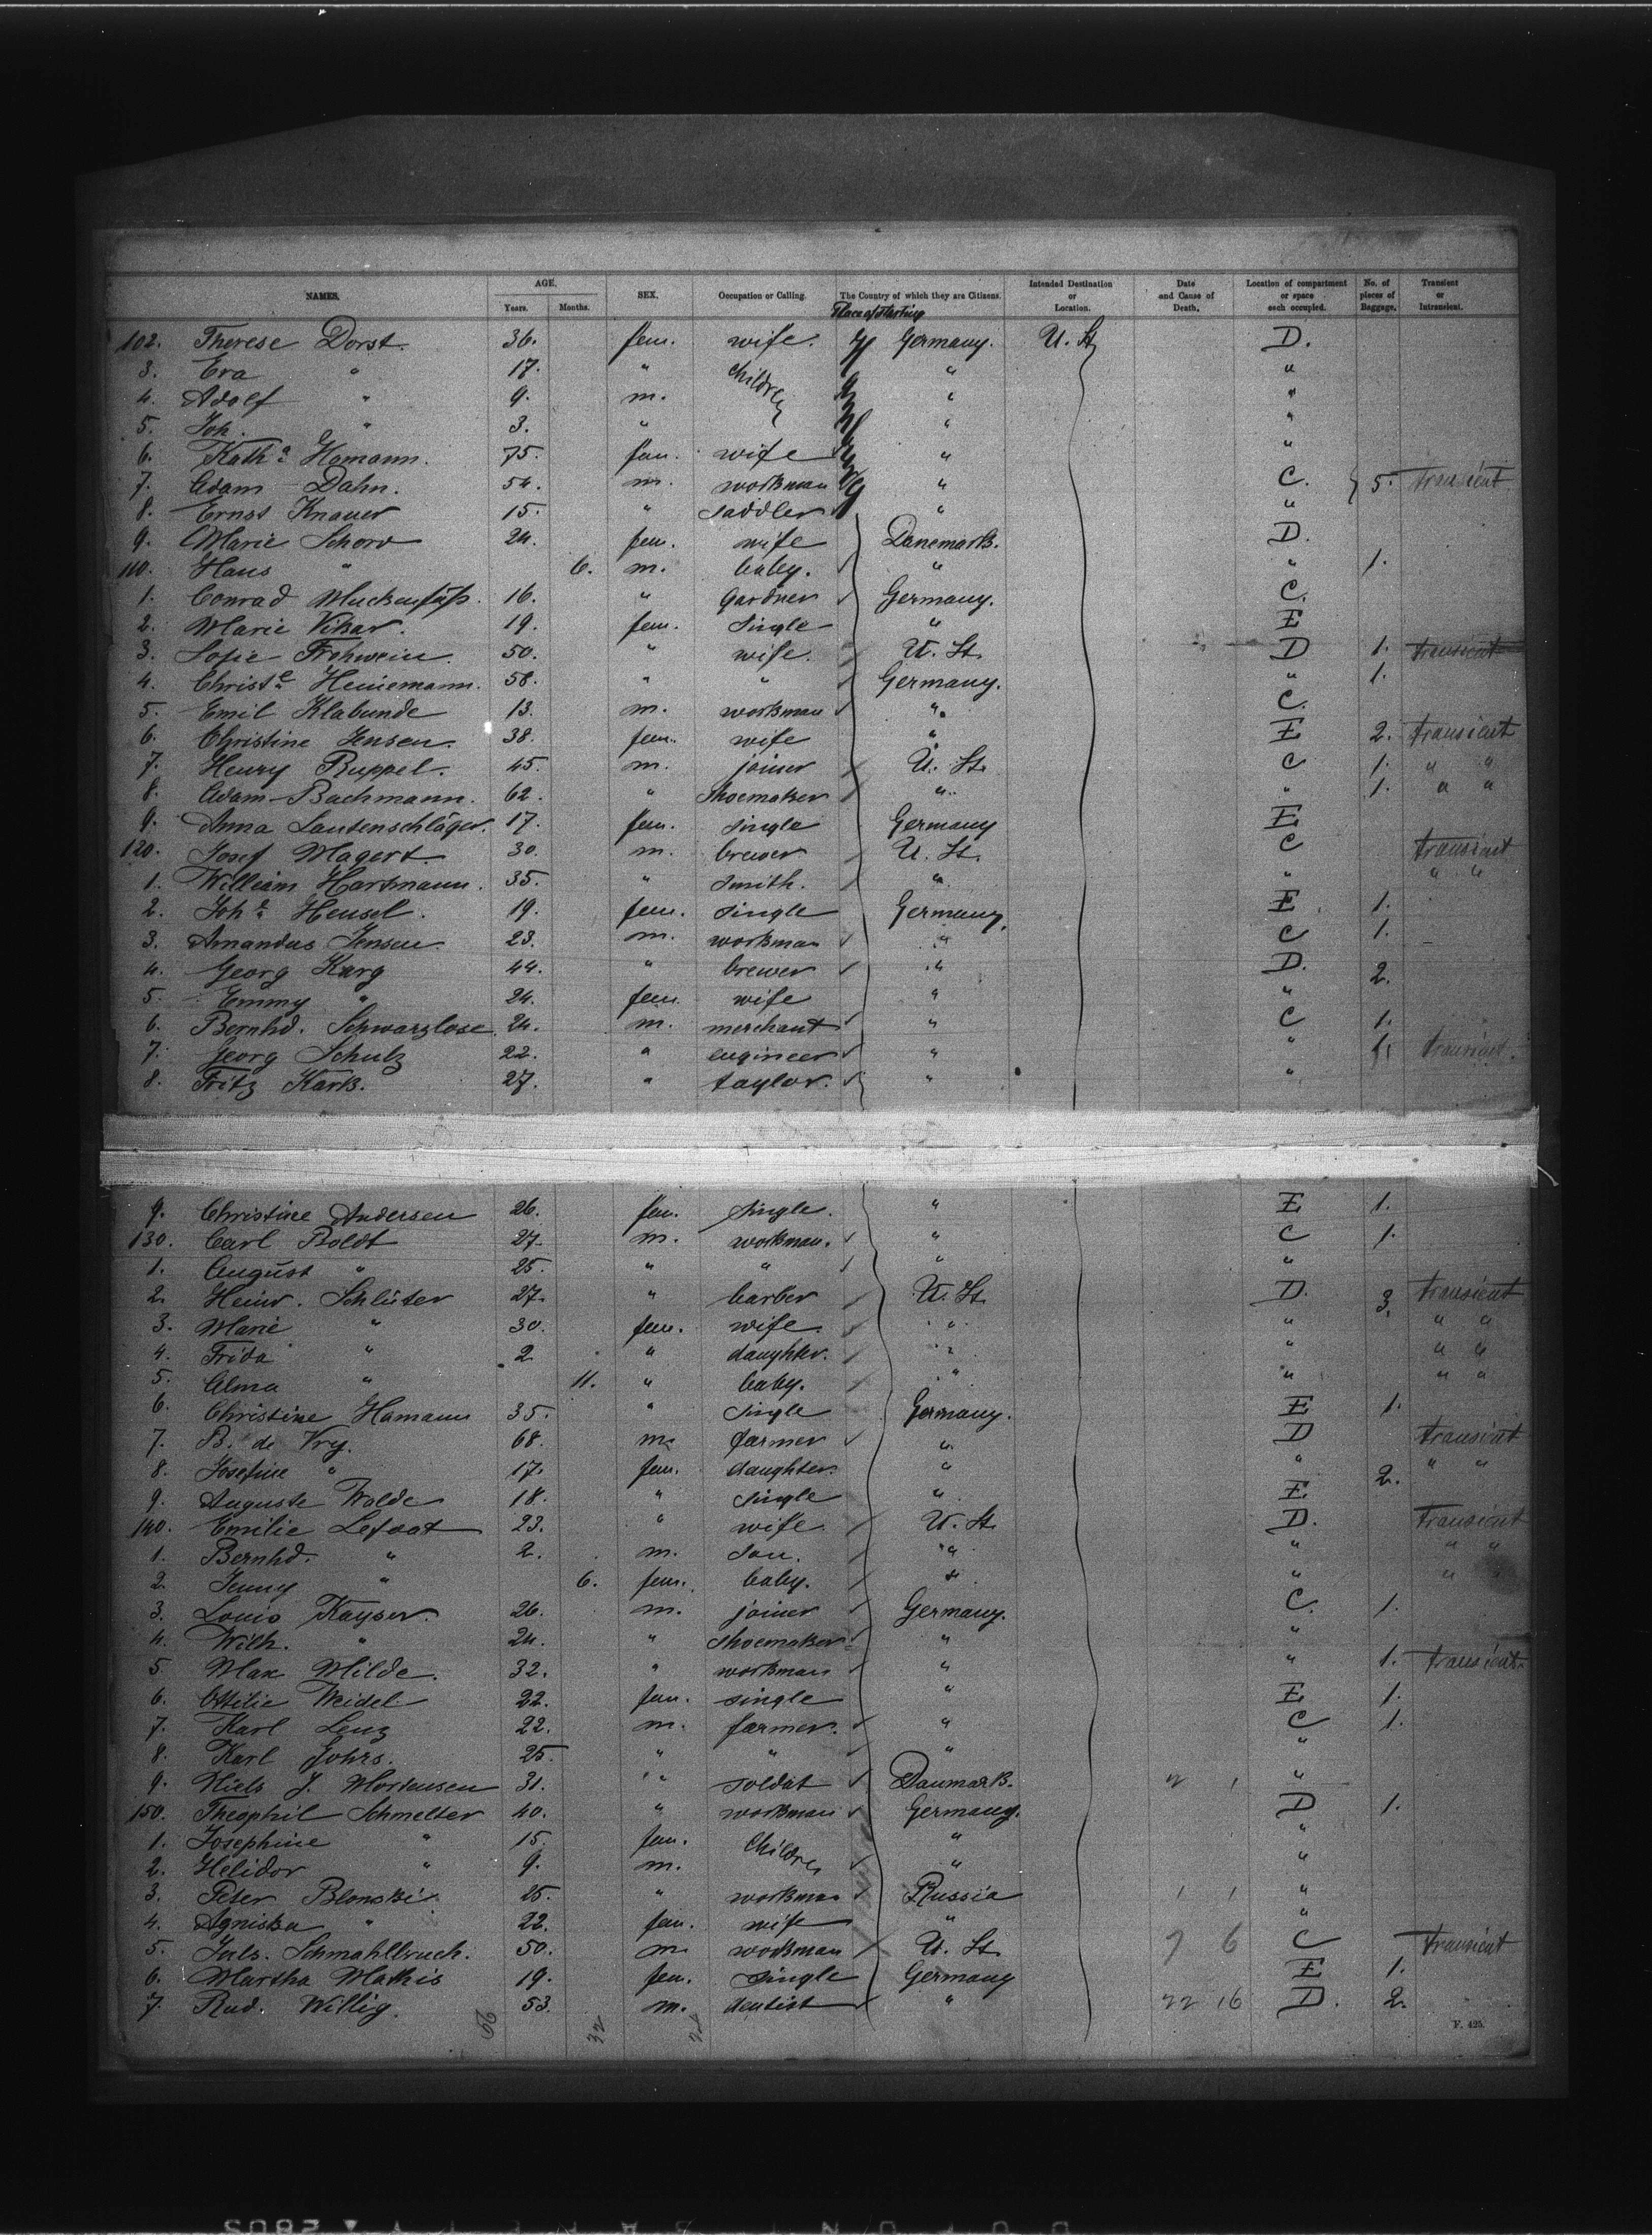 NAMES. AGE. Years. Months. SEX. Occupation or Calling. The Country of which they are Citizens. Intended Destination or Location. Date and Cause of Death. Location of compartment or space each occupied. No. of pieces of Baggage. Transient or Intransient.
Place of Starting
102. Therese Dorst. 36. fem. wife. Germany. U. St. D.
3. Eva " 17. " children " "
4. Adolf " 9. m. " "
5. Joh. " 3. " " "
6. Kath.a Homann. 75. fem. wife " "
7. Adam Dahn. 54. m. workman " C. 5. transient
8. Ernst Knauer 15. " saddler " "
9. Marie Schorv 24. fem. wife Danemark. D.
110. Hans " 6. m. baby. " " 1.
1. Conrad Muckenfuß. 16. " gardner Germany. C.
2. Marie Vikar. 19. fem. single " E
3. Sofie Frohwein. 50. " wife. U. St. D 1. transient
4. Christ.e Heinemann. 58. " " Germany. " 1.
5. Emil Klabunde 13. m. workman " C.
6. Christine Jensen. 38. fem. wife " E 2. transient
7. Henry Ruppel. 45. m. joiner U. St. C 1. " "
8. Adam Bachmann. 62. " shoemaker " " 1. " "
9. Anna Lautenschläger. 17. fem. single Germany E
120. Josef Magert. 30. m. brewer U. St. C transient
1. William Hartmann. 35. " smith. " " " "
2. Joh.a Hensel. 19. fem. single Germany. E 1.
3. Amandus Jensen. 23. m. workman " C 1.
4. Georg Karg 44. " brewer " D. 2.
5. Emmy " 24. fem. wife " "
6. Bernhd. Schwarzlose 24. m. merchant " C 1.
7. Georg Schulz 22. " engineer " " 1. transient.
8. Fritz Kark. 27. " taylor. " "
9. Christine Andersen 26. fem. single. " E 1.
130. Carl Boldt 27. m. workman. " C 1.
1. August " 25. " " " "
2. Heinr. Schlüter 27. " barber U. St. D. 3. transient
3. Marie " 30. fem. wife. " " " "
4. Frida " 2 " daughter. " " " "
5. Alma " 11. " baby. " " " "
6. Christine Hamann 35. " single Germany. E 1.
7. B. de Vry. 68. m. farmer " D transient
8. Josefine " 17. fem. daughter. " " 2. " "
9. Auguste Wolde 18. " single " E
140. Emilie Lefsat 23. " wife U. St. D. transient
1. Bernhd. " 2. m. son. " " " "
2. Jenny " 6. fem. baby. " " " "
3. Louis Kayser. 26. m. joiner Germany. C. 1.
4. Wilh. " 24. " shoemaker " "
5. Max Milde. 32. " workman " " 1. transient
6. Ottilie Weidel 22. fem. single " E 1.
7. Karl Lenz 22. m. farmer. " C 1.
8. Karl Johrs. 25. " " " "
9. Niels J. Mortensen 31. " soldat Danmark. "
150. Theophil Schmelter 40. " workman Germany. D 1.
1. Josephine " 15. fem. children " "
2. Helidor " 9. m. " "
3. Peter Blonski 25. " workman Russia "
4. Agniska " 22. fem. wife " "
5. Juls. Schmahlbruch. 50. m. workman U. St. 7 6 C transient
6. Martha Mathis 19. fem. single Germany E 1.
7. Rud. Willig. 53. m. dentist " 22 16 D. 2.
F. 425.